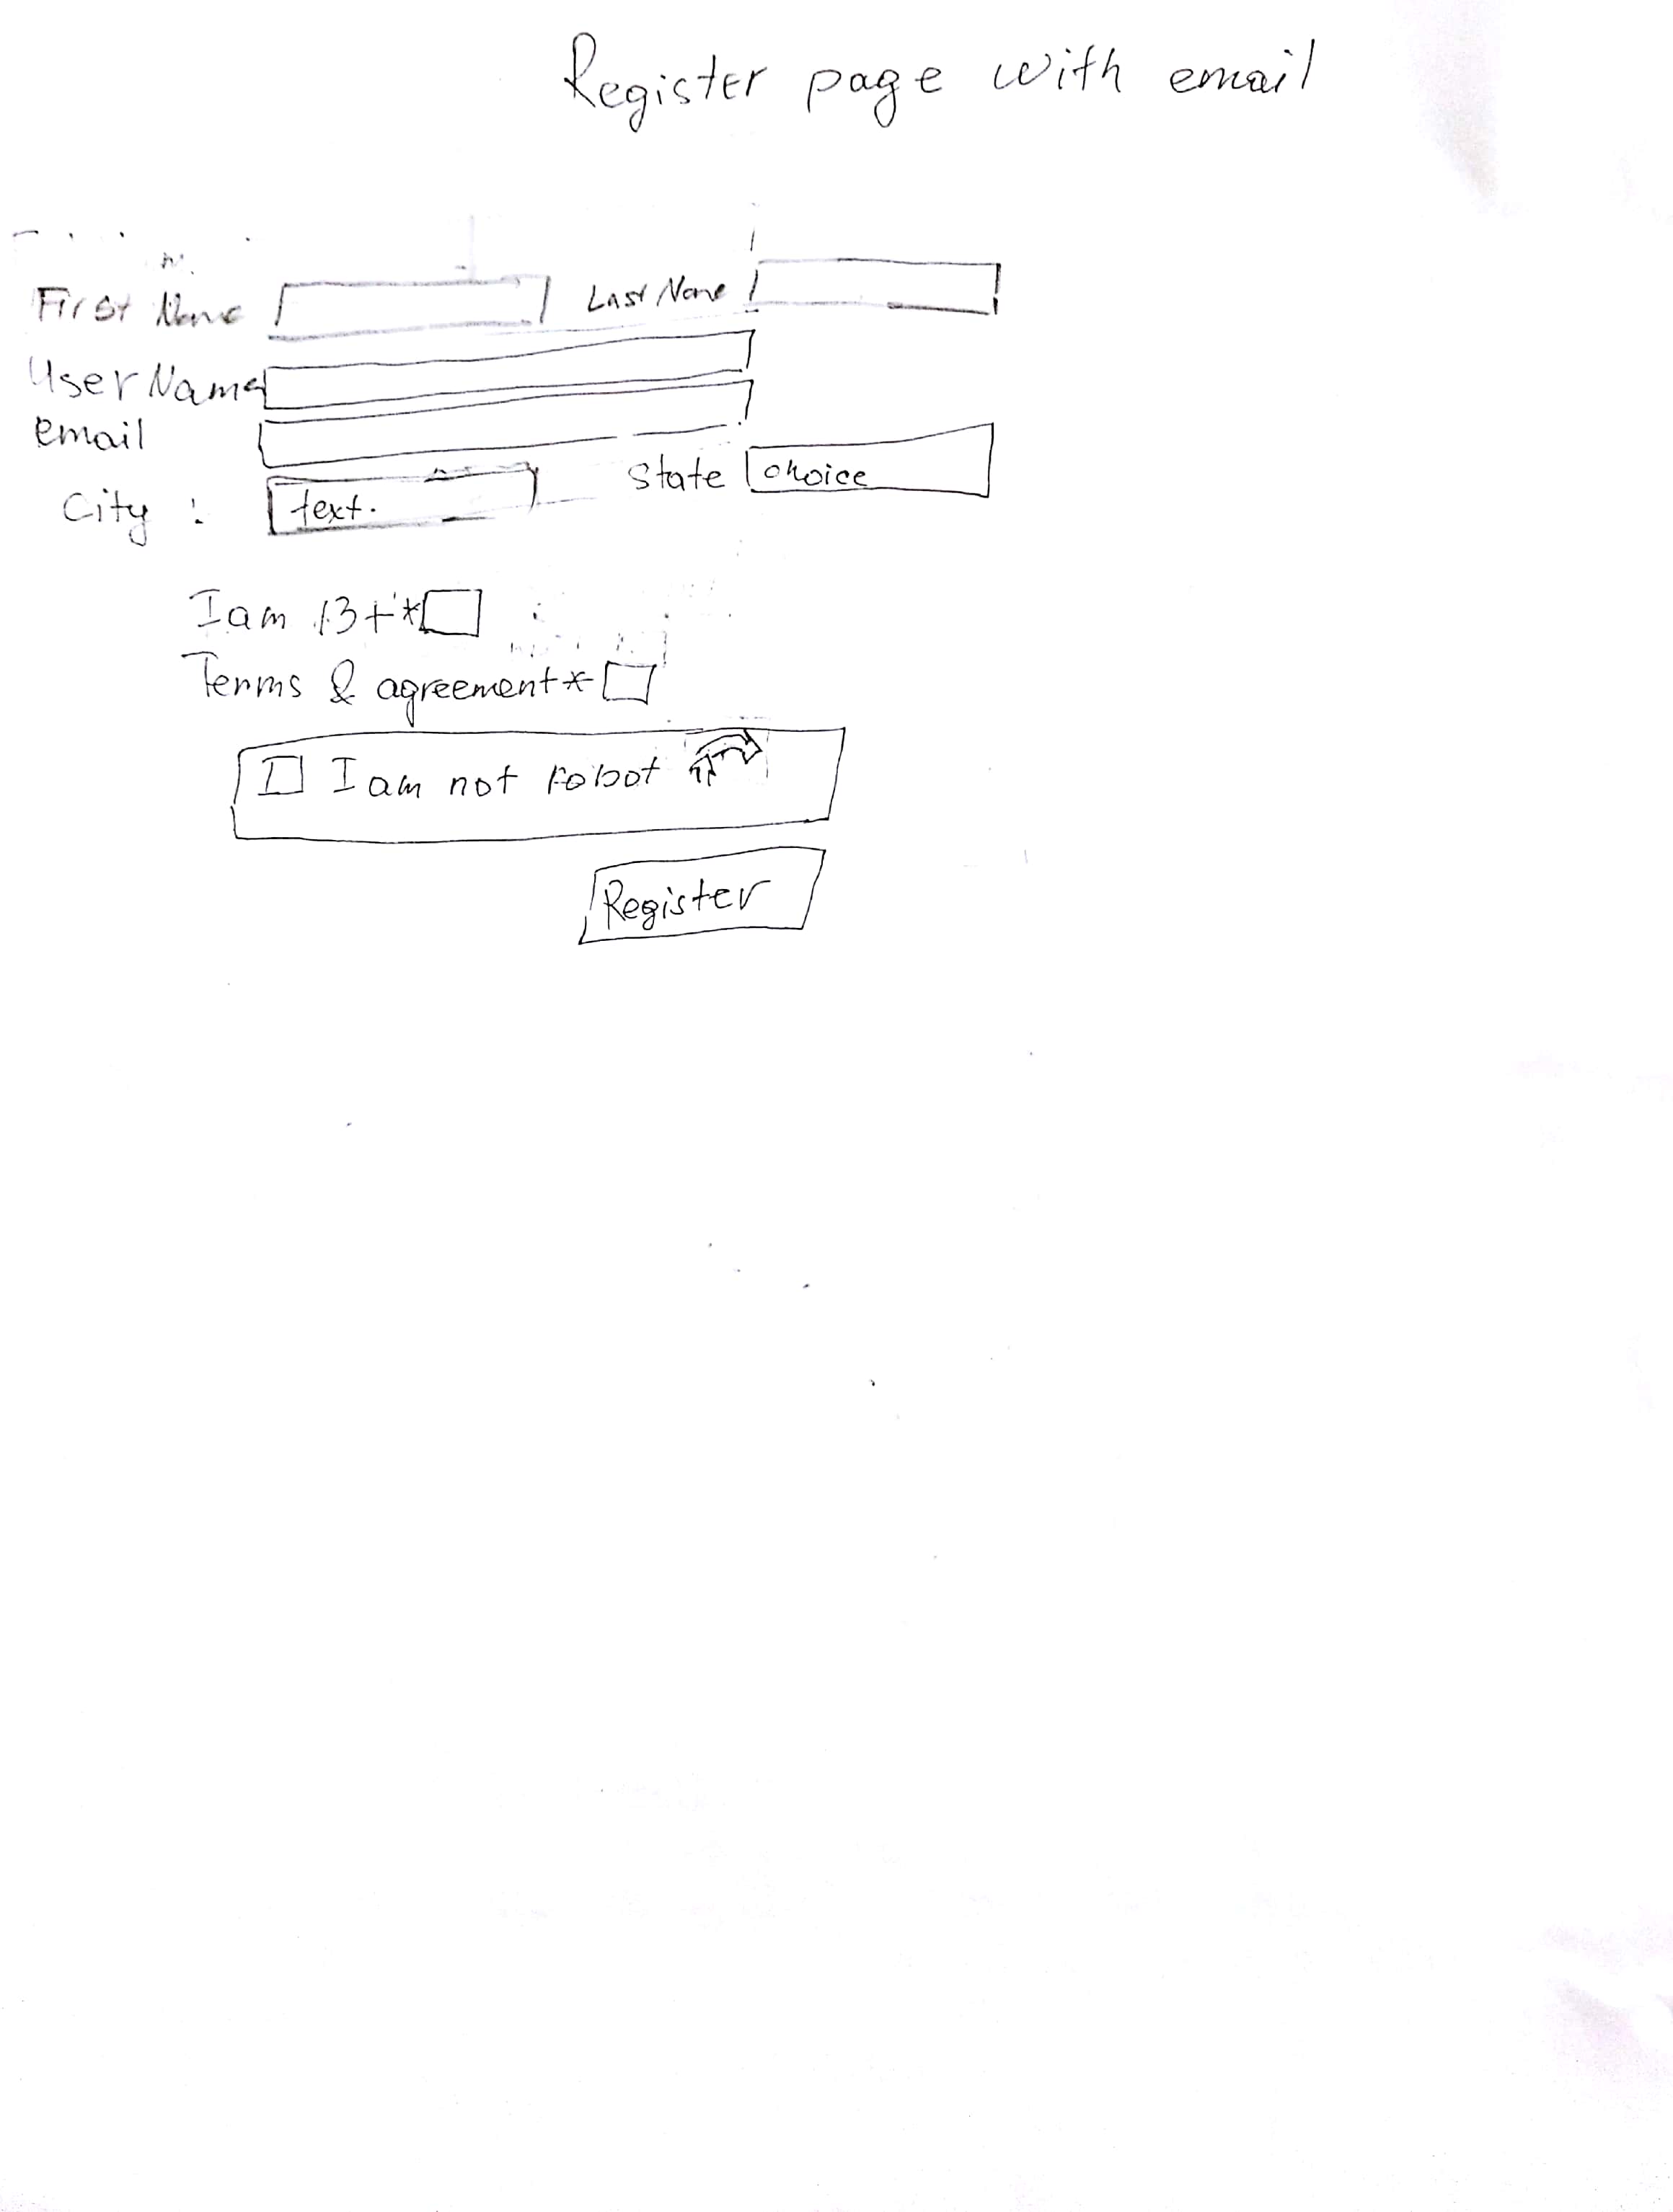 Register page with email
First Name Last Name
User Name
email
City : text. State choice
I am 13+*
Terms & agreement*
I am not robot
Register